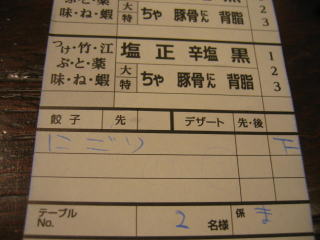 ぶ・と・薬 大 ちゃ 豚骨にん 背脂 2
味・ね・蝦 特 3
つけ・竹・江 塩 正 辛塩 黒 1
ぶ・と・薬 大 ちゃ 豚骨にん 背脂 2
味・ね・蝦 特 3
餃子 先 デザート 先・後
にごり
テーブルNo. 2 名様 係 ま